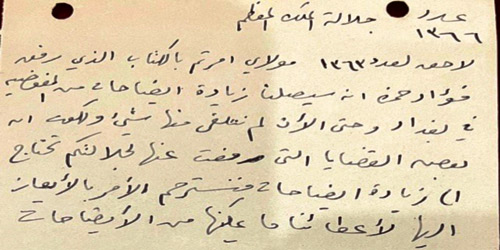 عدد جلالة الملك المعظم
١٣٦٦
لاحق لعدد ١٣٦٣ مولاي امرتم بالكتاب الذي رفق
فؤاد حمزه انه سيصلنا زيادة ايضاحات من المفوضيه
في بغداد وحتى الأن لم نتلقى منها شيئ ولكون ان
بعض القضايا التي رفعت عنها لجلالتكم تحتاج
الى زيادة ايضاحات فنسترحم الأمر بالأيعاز
اليها لأعطائنا ما يمكنها من الأيضاحات